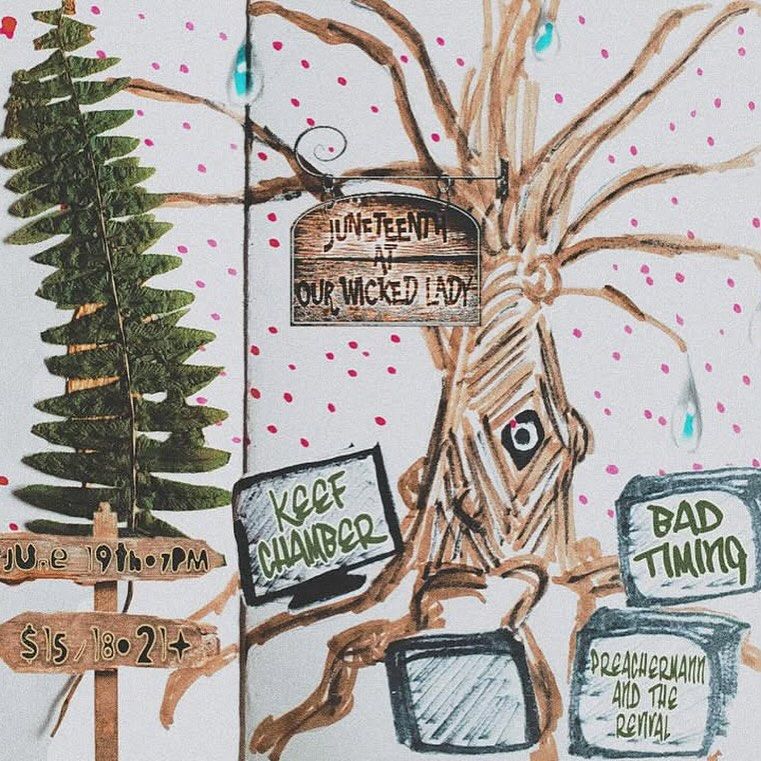 JUNETEENTH
AT
OUR WICKED LADY
KEEF
CHAMBER
BAD
TIMING
PREACHERMANN
AND THE
REVIVAL
JUNE 19th • 7PM
$15/18 • 21+